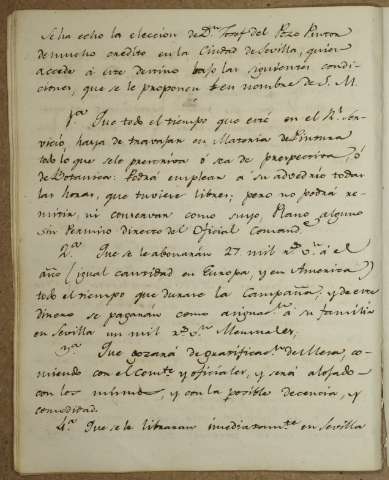 Se ha echo la eleccion de Dn. Josef del Pozo Pintor
de mucho credito en la Ciudad de Sevilla, quien
accede à este destino bajo las siguientes condi-
ciones, que se le proponen en nombre de S. M.
1ª. Que todo el tiempo que esté en el Rl. Ser-
vicio, haya de travajar en Materia de Pintura
todo lo que se le prescriva ô sea de perspectiva, ô
de Botanica: Podrá emplear a su advedrio todas
las horas, que tuviere libres; pero no podrá re-
mitir, ni conservar como suyo, Plano alguno
sin Permiso directo del Oficial Comande.
2ª. Que se le abonarán 27 mil rs. vn. â el
año (igual cantidad en Europa, y en America)
todo el tiempo que durare la Campaña; y de este
dinero se pagarán como asignn. a su familia
en Sevilla un mil rs. vn. Mensuales;
3ª. Que gozará de gratificasn. de Mesa, co-
miendo con el Comte. y oficiales, y será alojado
con los mismos, y con la posible decencia, y
comodidad.
4ª. Que se le libraran imediatamte. en Sevilla